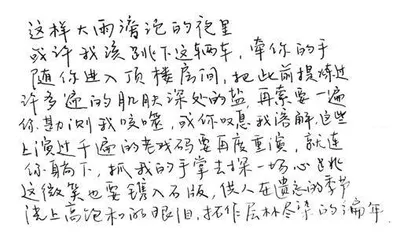 这样大雨滂沱的夜里
或许我该跳下这辆车，牵你的手
随你进入顶楼房间，把此前提炼过
许多遍的肌肤深处的盐，再索要一遍
你勘测我咬噬，或你叹息我溶解，这些
上演过千遍的老戏码要再度重演，就连
你躺下，抓我的手掌去探一场心跳
这微笑也要镌入石版，供人在遗忘的季节
浇上高饱和的眼泪，拓作层林尽染的遍年